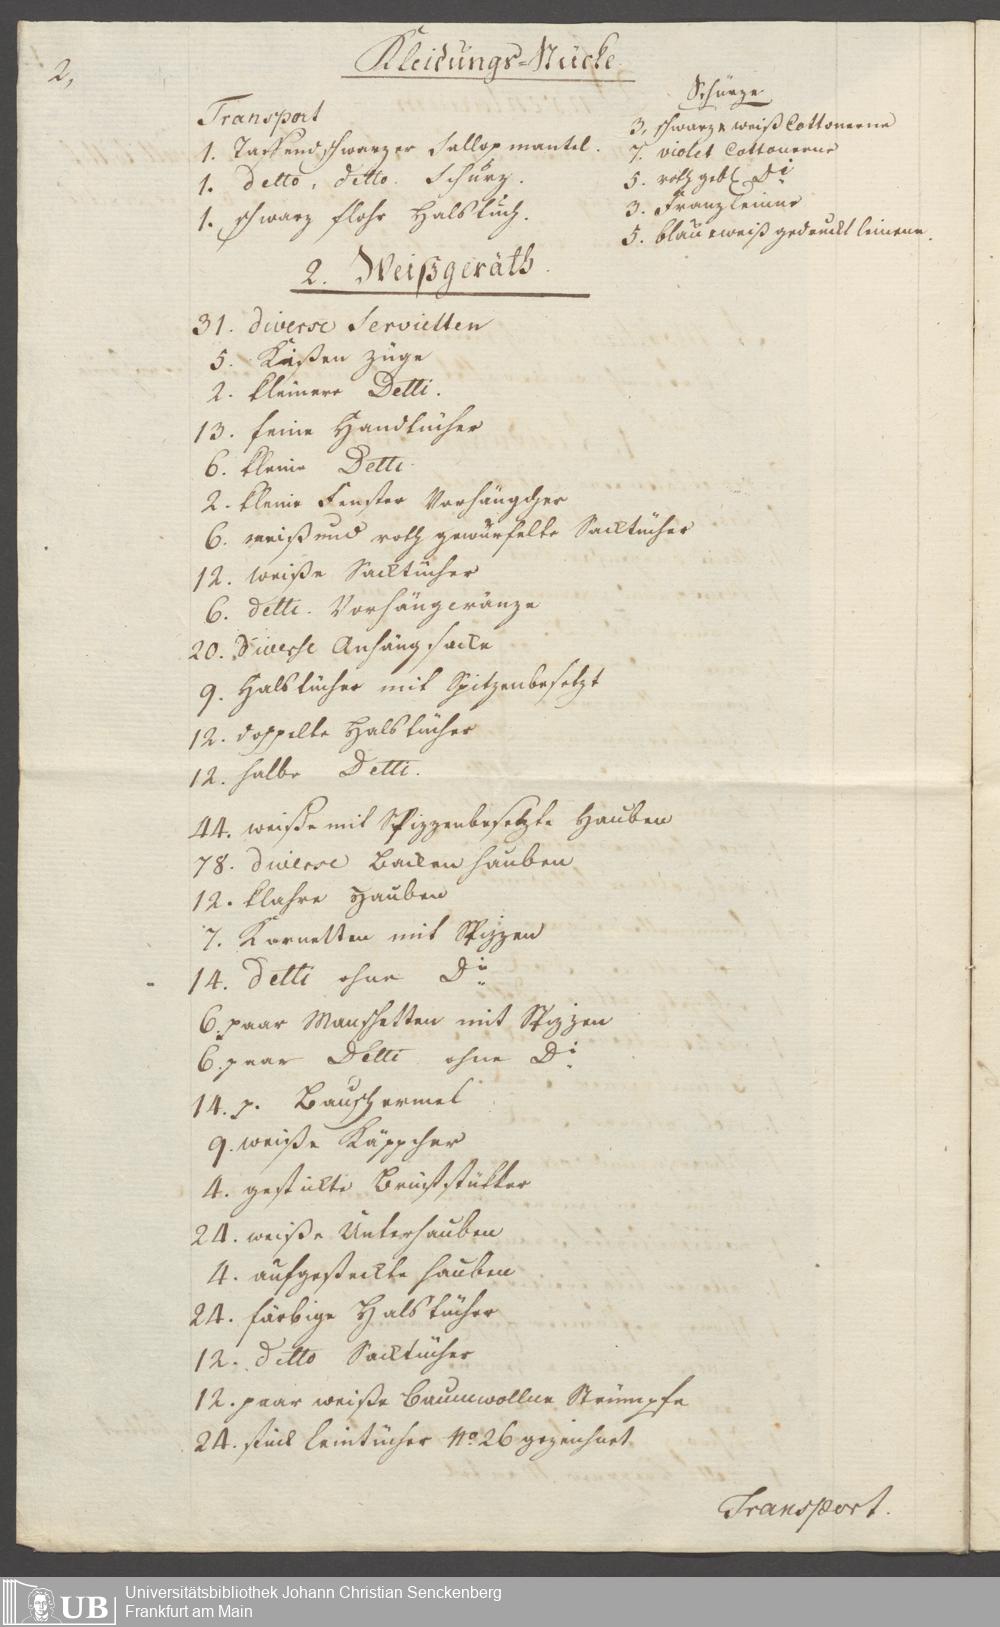 2,
Kleidungs-Stücke
Transport
1. Taffend schwarzer Sallop mantel.
1. detto, ditto. Schürz.
1. schwarz flohr Halstuch.
Schürze
3. schwarz u weiß Cottonerne
7. violet Cottonerne
5. roth gebl. Di
3. Franzleinne
5. blau u weiß gedruckt leinene.
2. Weißgeräth.
31. diverse Servietten
5. Kißen züge
2. kleinere Detti.
13. feine Handtücher
6. kleine Detti
2. kleine Fenster Vorhängcher
6. weiß und roth gewürfelte Sacktücher
12. weiße Sacktücher
6. detti. Vorhängcränze
20. Diverse Anhäng sacke
9. Halstücher mit Spitzenbesetzt
12. doppelte Halstücher
12. halbe Detti.
44. weiße mit Spizzenbesetzte Hauben
78. diverse Backen hauben
12. klahre Hauben
7. Kornetten mit Spizzen
14. detti ohne Di
6. paar Manschetten mit Spizzen
6. paar Detti ohne Di
14. p. Bauschermel
9. weiße Käppcher
4. gestickte Bruststükker
24. weiße Unterhauben
4. aufgesteckte hauben
24. färbige Halstücher
12. ditto Sacktücher
12. paar weiße baumwollne Strümpfe
24. stück leintücher No 26 gezeichnet
Transport.
UB
Universitätsbibliothek Johann Christian Senckenberg
Frankfurt am Main